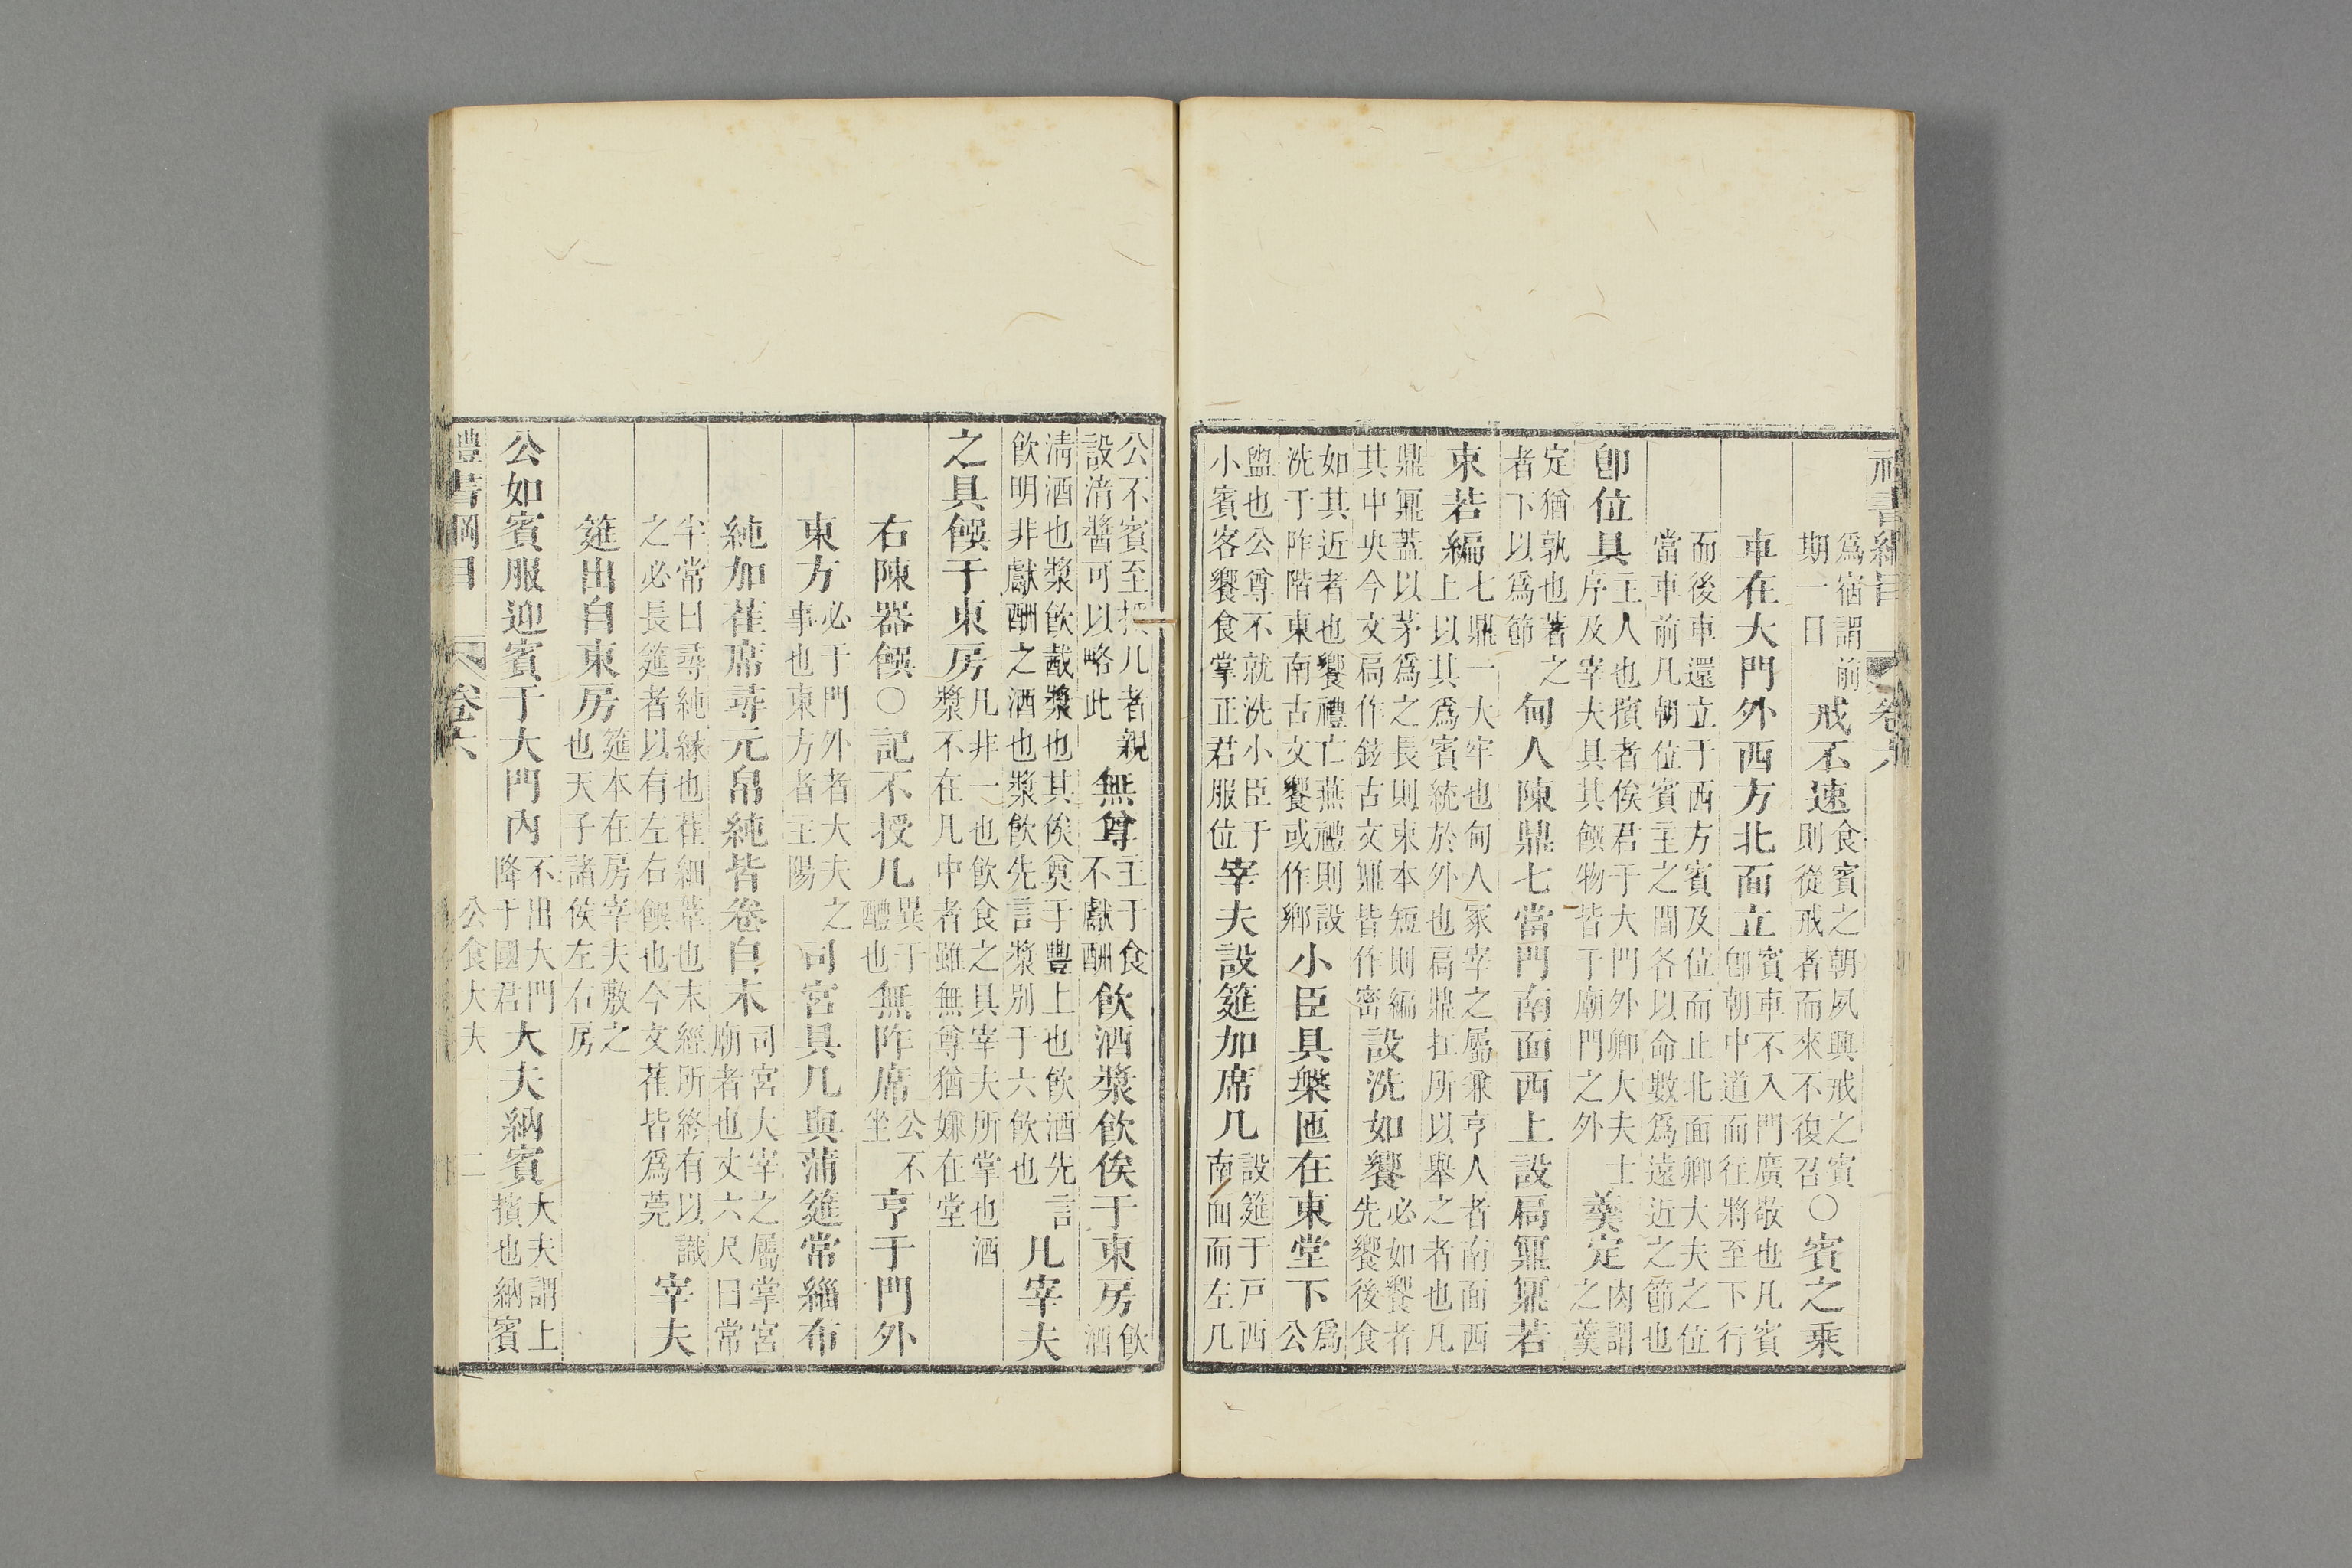 禮書綱目 卷六
爲宿謂前期一日戒不速食賓之朝夙興戒之賓則從戒者而來不復召○賓之乗
車在大門外西方北面立賓車不入門廣敬也凡賓卽朝中道而往將至下行
而後車還立于西方賓及位而止北面卿大夫之位當車前凡朝位賓主之間各以命數爲遠近之節也
卽位具主人也擯者俟君于大門外卿大夫士序及宰夫具其饌物皆于廟門之外羹定肉謂之羹
定猶孰也著之者下以爲節甸人陳鼎七當門南面西上設扃鼏鼏若
束若編七鼎一大牢也甸人冢宰之屬兼亨人者南面西上以其爲賓統於外也扃鼎扛所以舉之者也凡
鼎鼏蓋以茅爲之長則束本短則編其中央今文扃作鉉古文鼏皆作密設洗如饗必如饗者先饗後食
如其近者也饗禮亡燕禮則設洗于阼階東南古文饗或作鄉小臣具槃匜在東堂下爲公
盥也公尊不就洗小臣于小賓客饗食掌正君服位宰夫設筵加席几設筵于戸西南面而左几
公不賓至授几者親設湇醬可以略此無尊主于食不獻酬飮酒漿飮俟于東房飮酒
淸酒也漿飮䤗漿也其俟奠于豐上也飮酒先言飮明非獻酬之酒也漿飮先言漿别于六飮也凡宰夫
之具饌于東房凡非一也飮食之具宰夫所掌也酒漿不在凡中者雖無尊猶嫌在堂
右陳器饌○記不授几異于醴也無阼席公不坐亨于門外
東方必于門外者大夫之事也東方者主陽司宮具几與蒲筵常緇布
純加萑席尋元帛純皆卷自末司宮大宰之屬掌宮廟者也丈六尺曰常
半常曰尋純緣也萑細葦也末經所終有以識之必長筵者以有左右饌也今文萑皆爲莞宰夫
筵出自東房筵本在房宰夫敷之也天子諸侯左右房
公如賓服迎賓于大門內不出大門降于國君大夫納賓大夫謂上擯也納賓
禮書綱目 卷六 公食大夫 二